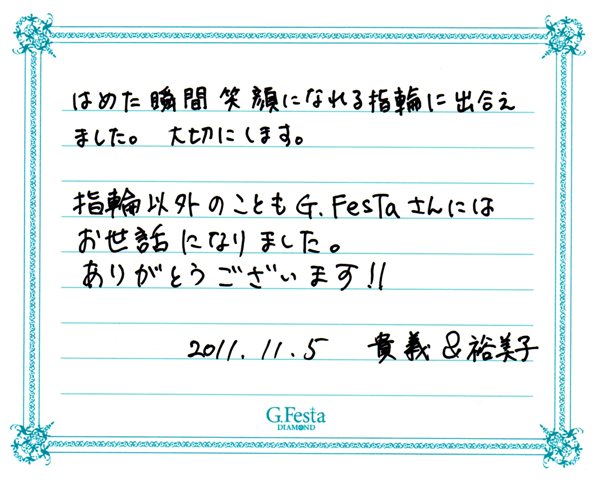 はめた瞬間笑顔になれる指輪に出合え
ました。 大切にします。
指輪以外のこともG.FesTaさんには
お世話になりました。
ありがとうございます!!
2011.11.5 貴義&裕美子
G.Festa
DIAMOND